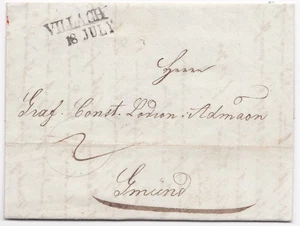 VILLACH
18 JULY
Herrn
Graf. Const. Lodron. Admaon
2
Gmünd